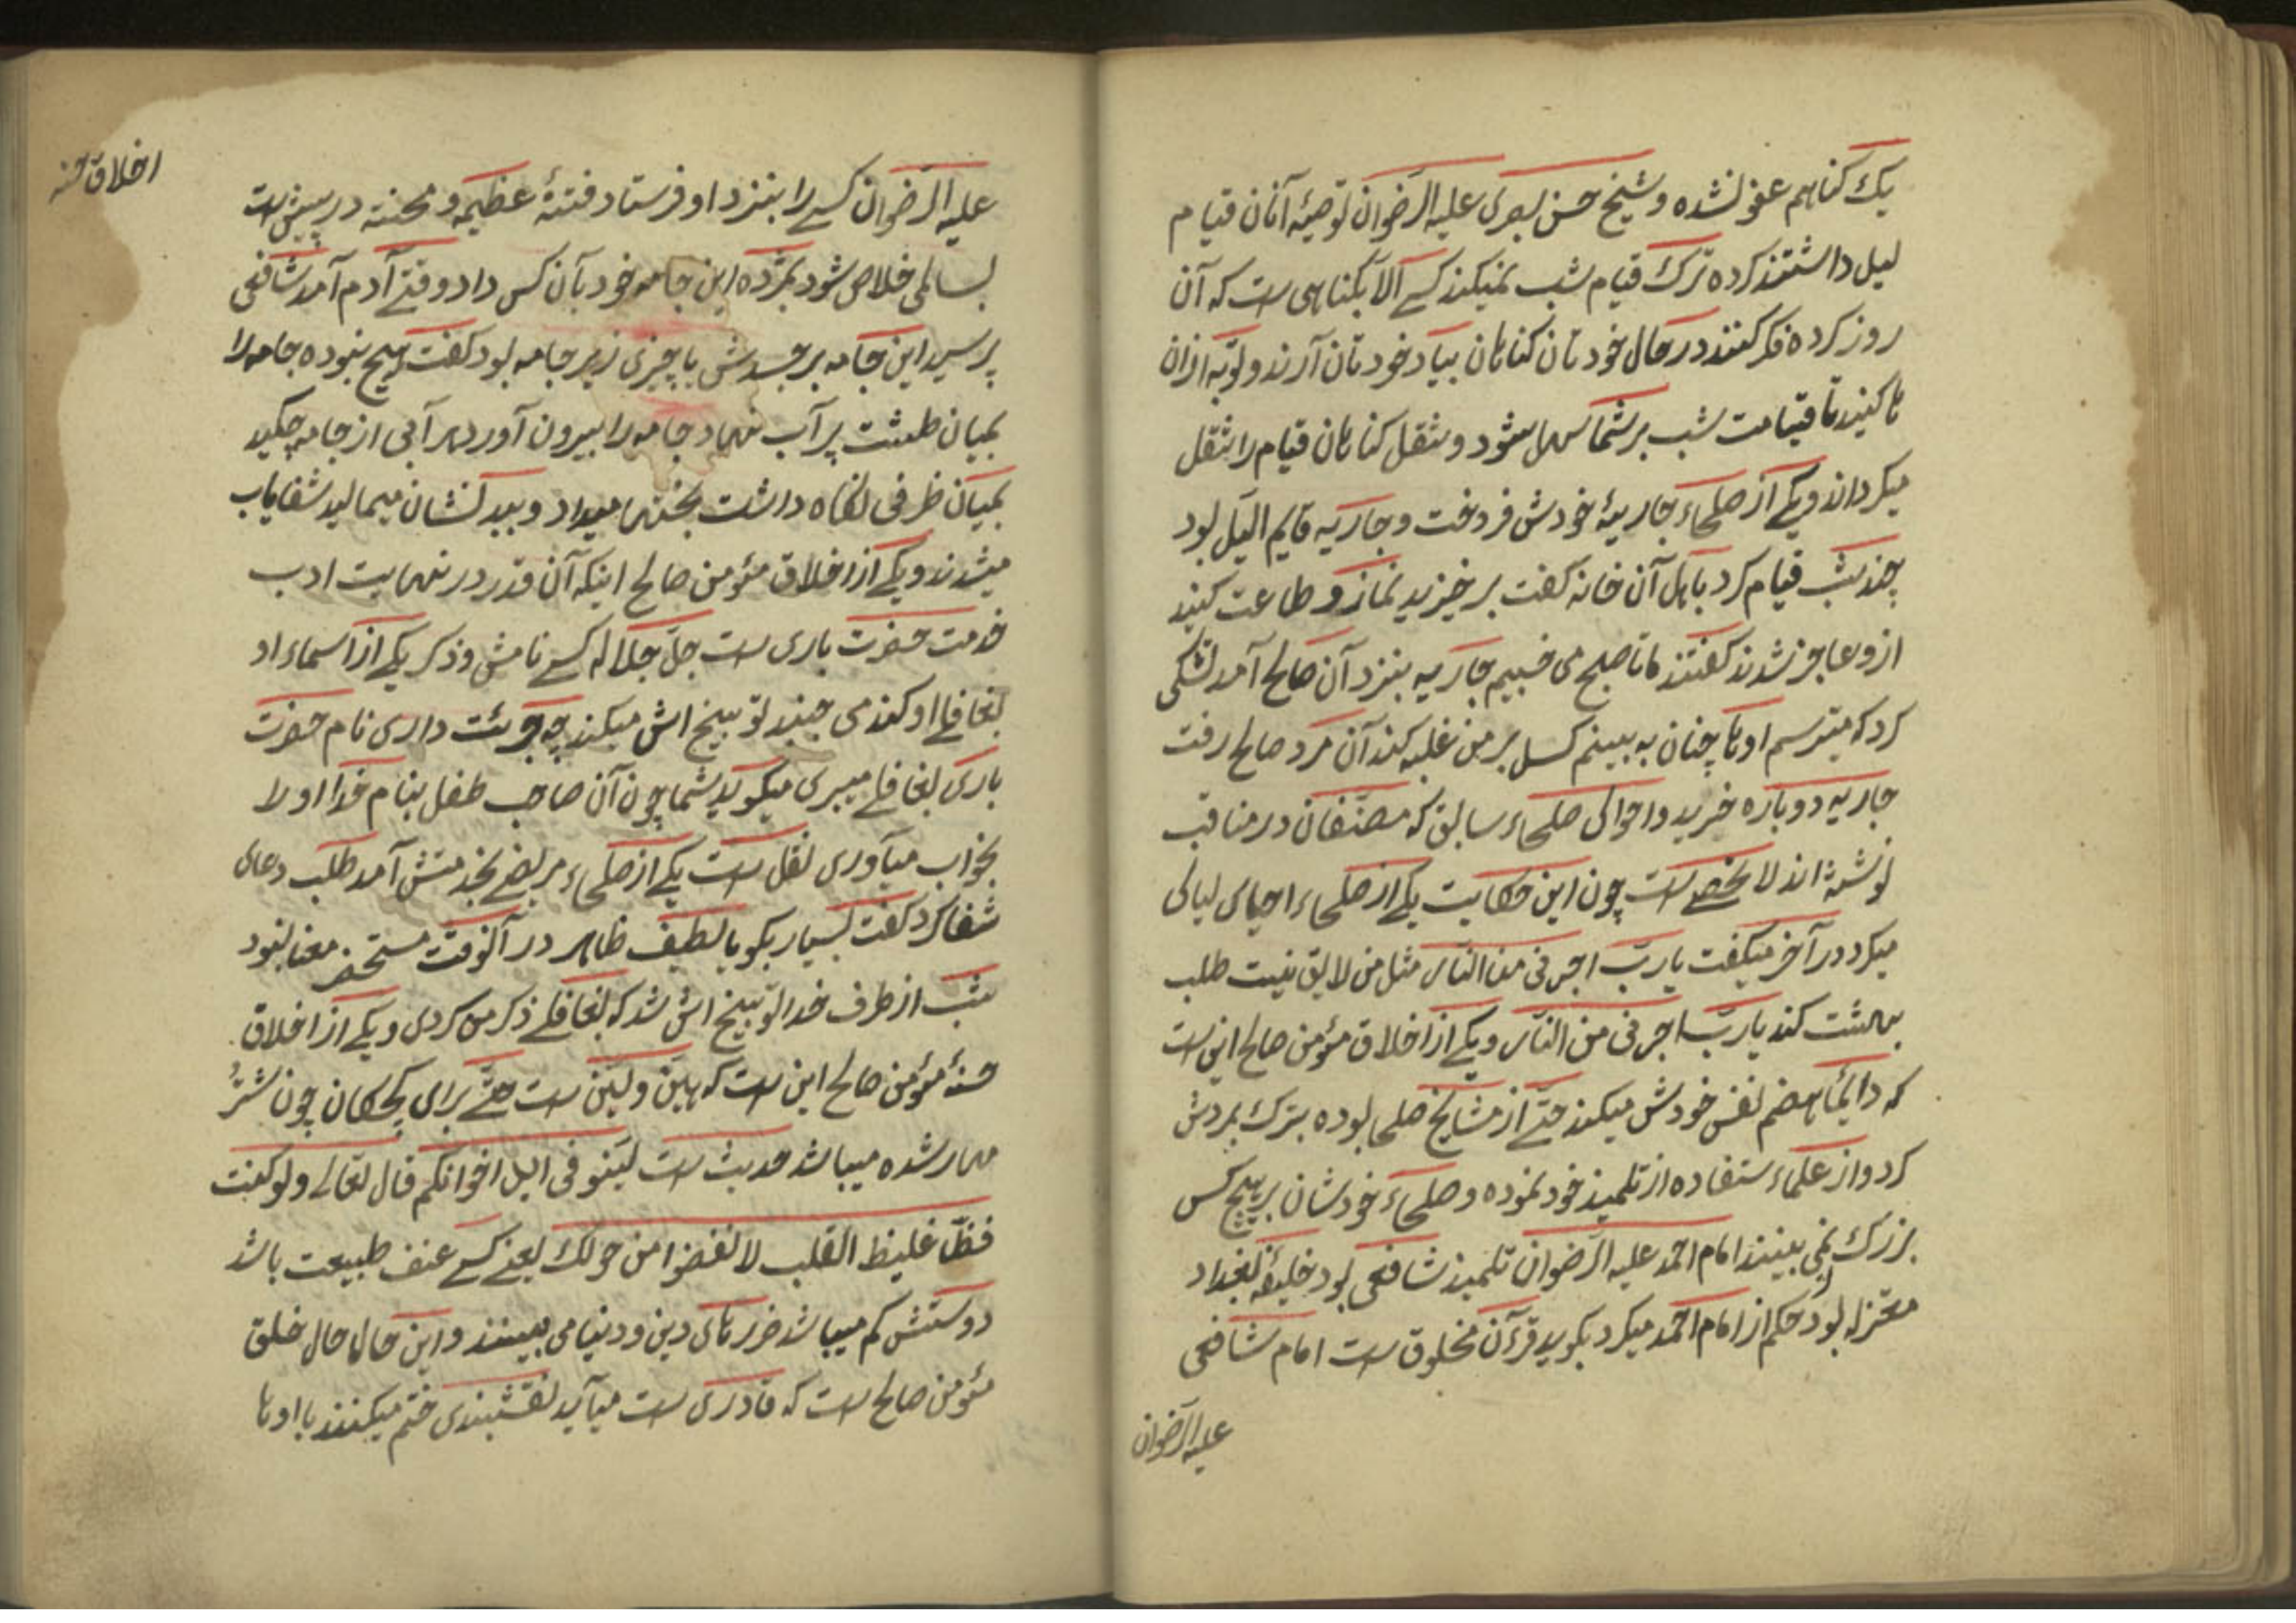 یک گناهم عفو نشده و شیخ حسن بصری علیه الرّضوان توصیهٔ آنان قیام
لیل داشتند کرده ترک قیام شب نمیکند کسے الّا بگناهی ست که آن
روز کرده فکر کنند در حال خودتان گناهان بیاد خودتان آرند و توبه ازان
ها کنید تا قیامت شب بر شما سهل شود و ثقل گناهان قیام را ثقل
میگرداند و یکے از صلحاء جاریهٔ خودش فروخت و جاریه قایم اللیل بود
چند شب قیام کرد باهل آن خانه گفت بر خیزید نماز و طاعت کنید
ازو عاجز شدند گفتند ما تا صبح می خسبیم جاریه بنزد آن صالح آمد تشکی
کرد که میترسم اوها چنان به بینم کسل بر من غلبه کند آن مرد صالح رفت
جاریه دوباره خرید و احوالی صلحاء سابق که مصنّفان در مناقب
نوشته اند لا تحصے ست چون این حکایت یکے از صلحاء احیای لیالی
میکرد در آخر میگفت یا ربّ اجرنی من النّار مثل من لایق نیست طلب
بهشت کند یا ربّ اجرنی من النّار و یکے از اخلاق مؤمن صالح این ست
که دایمًا هضم نفس خودش میکند حتّے از مشایخ صلحا بوده بترک بردش
کرد و از علماء ستفاده از تلمیذ خود نموده و صلحاء خودشان بر هیچ کس
بزرگ نمی بینند امام احمد علیه الرّضوان تلمیذ شافعی بود خلیفهٔ بغداد
معتزله بود حکم از امام احمد میکرد بگوید قرءآن مخلوق ست امام شافعی
علیه الرّضوان
اخلاق حسنه
علیه الرّضوان کسے را بنزد او فرستاد فتنهٔ عظیمه و محنته در پیش ست
بسالمی خلاص شود بمژده این جامه خود بآن کس داد وقتے آدم آمد شافعی
پرسید این جامه بر جسدش یا چیزی زیر جامه بود گفت هیچ نبوده جامه را
بمیان طشت پر آب نهاد جامه را بیرون آورد هر آبی از جامه چکید
بمیان ظرفی نگاه داشت بخستها میداد و ببدنشان میمالید شفایاب
میشدند و یکے از اخلاق مئومن صالح اینکه آن قدر در نهایت ادب
خدمت حضرت باری ست جلّ جلاله کسے نامش و ذکر یکے از اسماء او
بغافلے او کند می جنبد توبیخ اش میکند چه جرئت داری نام حضرت
باری بغافلے میبری میگوید شما چون آن صاحب طفل بنام خدا او را
بخواب میآوری نقل ست یکے از صلحاء مریضے بخدمتش آمد طلب دعای
شفا کرد گفت بسیار بگو یا لطیف ظاهر در آنوقت مستحضر معنا نبود
شب از طرف خدا توبیخ اش شد که بغافلے ذکر من کردی و یکے از اخلاق
حسنهٔ مؤمن صالح این ست که هیّن و لیّن ست حتّے برای بچکان چون شترُ
مهار شده میباشد حدیث ست لیّنو فی ایل اخوانکم قال تعالے ولو کنت
فظّا غلیظ القلب لانفضوا من حولک یعنے کسے عنف طبیعت باشد
دوستش کم میباشد ضررهای دین و دنیا می بینند و این حالها حال خلق
مئومن صالح ست که قادری ست میآید نقشبندی ختم میکنند با اوها